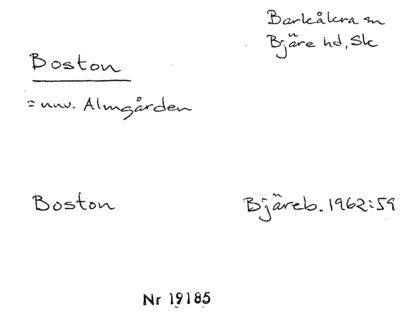 Barkåkra sn
Bjäre hd, Sk
Boston
= nuv. Almgården
Boston Bjäreb. 1962:59
Nr 19185